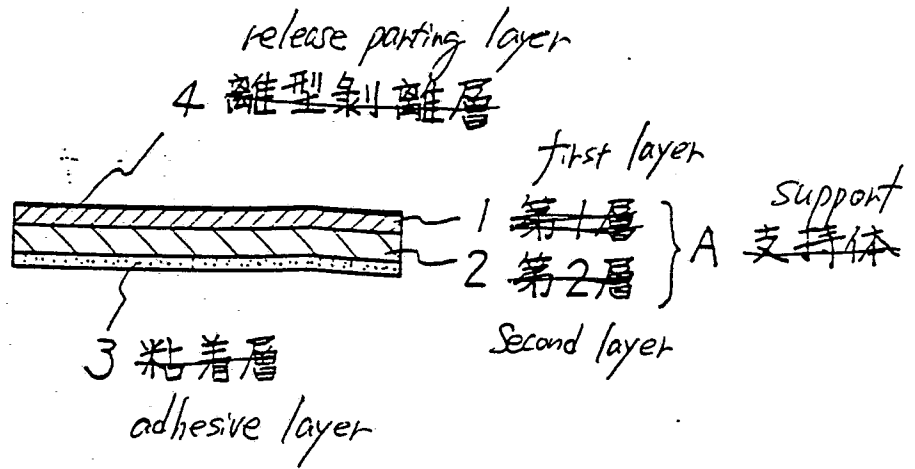 release parting layer
4 離型剝離層
first layer
1 第1層
support
A 支持体
2 第2層
Second layer
3 粘着層
adhesive layer